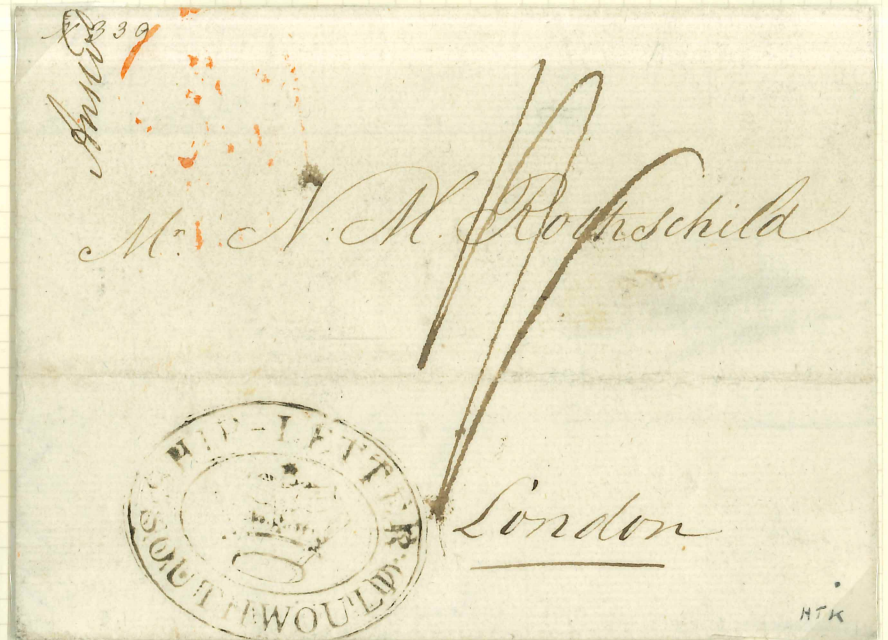 N 339
Mr. N. M. Rothschild
London
SHIP-LETTER
SOUTHWOULD
HTK